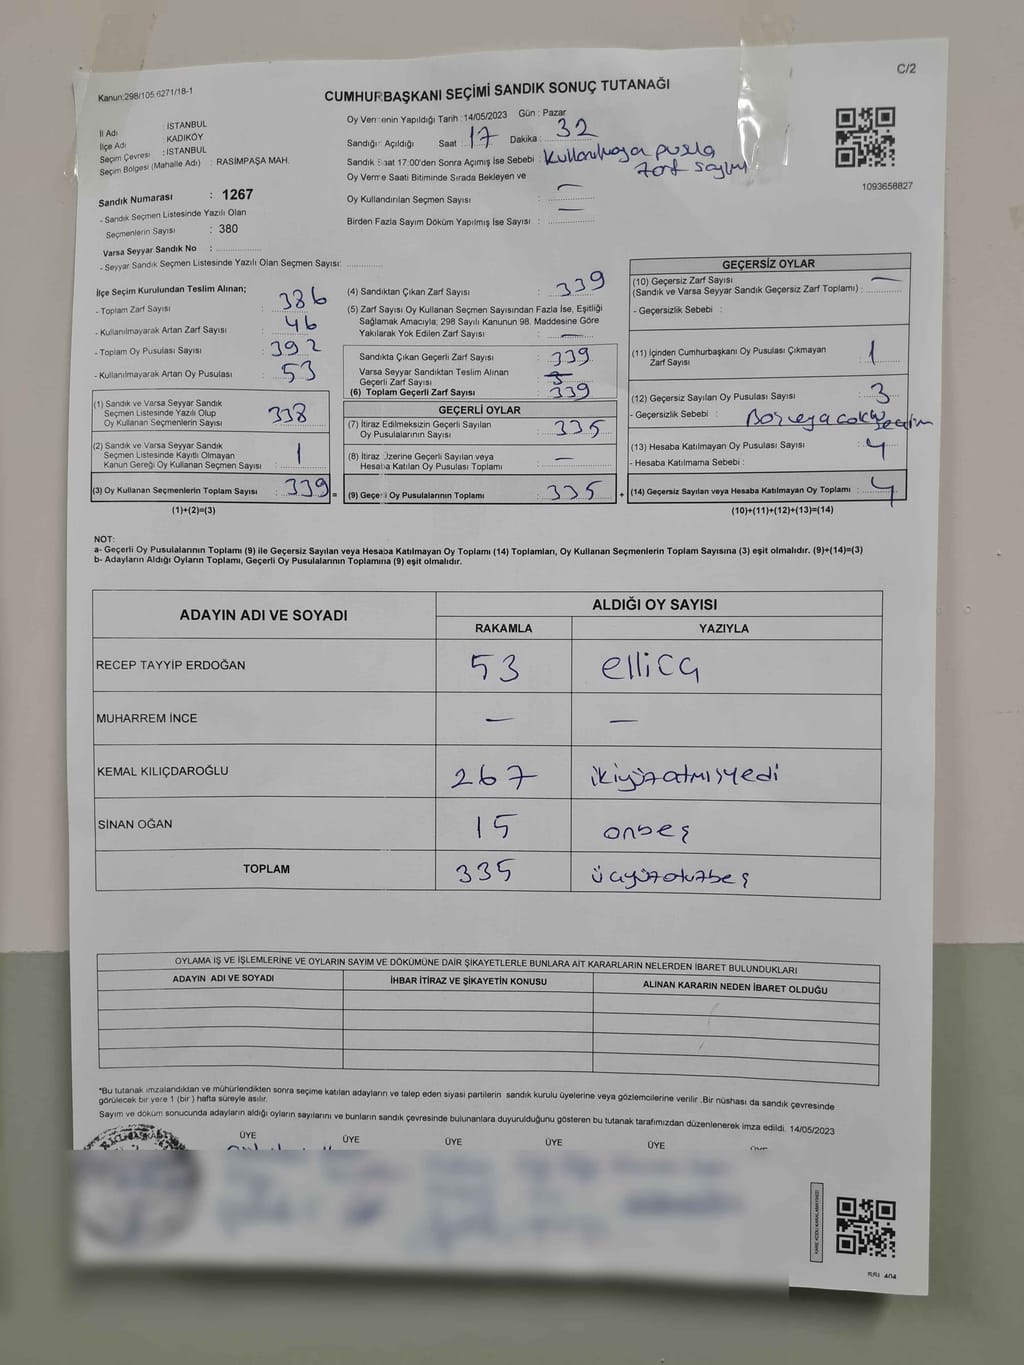 C/2
Kanun:298/105 6271/18-1
CUMHURBAŞKANI SEÇİMİ SANDIK SONUÇ TUTANAĞI
İl Adı : İSTANBUL
İlçe Adı : KADIKÖY
Seçim Çevresi : İSTANBUL
Seçim Bölgesi (Mahalle Adı) : RASİMPAŞA MAH.
Sandık Numarası : 1267
- Sandık Seçmen Listesinde Yazılı Olan
Seçmenlerin Sayısı : 380
Varsa Seyyar Sandık No :
- Seyyar Sandık Seçmen Listesinde Yazılı Olan Seçmen Sayısı:
Oy Vermenin Yapıldığı Tarih : 14/05/2023 Gün : Pazar
Sandığın Açıldığı Saat : 17 Dakika : 32
Sandık Saat 17:00'den Sonra Açılmış İse Sebebi : Kullanılmayan pusla
zarf sayımı
Oy Verme Saati Bitiminde Sırada Bekleyen ve
Oy Kullandırılan Seçmen Sayısı : —
Birden Fazla Sayım Döküm Yapılmış İse Sayısı : —
1093658827
İlçe Seçim Kurulundan Teslim Alınan;
- Toplam Zarf Sayısı : 386
- Kullanılmayarak Artan Zarf Sayısı : 46
- Toplam Oy Pusulası Sayısı : 392
- Kullanılmayarak Artan Oy Pusulası : 53
(1) Sandık ve Varsa Seyyar Sandık
Seçmen Listesinde Yazılı Olup
Oy Kullanan Seçmenlerin Sayısı 338
(2) Sandık ve Varsa Seyyar Sandık
Seçmen Listesinde Kayıtlı Olmayan
Kanun Gereği Oy Kullanan Seçmen Sayısı 1
(3) Oy Kullanan Seçmenlerin Toplam Sayısı 339 =
(1)+(2)=(3)
(4) Sandıktan Çıkan Zarf Sayısı : 339
(5) Zarf Sayısı Oy Kullanan Seçmen Sayısından Fazla İse, Eşitliği
Sağlamak Amacıyla; 298 Sayılı Kanunun 98. Maddesine Göre
Yakılarak Yok Edilen Zarf Sayısı : —
Sandıkta Çıkan Geçerli Zarf Sayısı : 339
Varsa Seyyar Sandıktan Teslim Alınan
Geçerli Zarf Sayısı
(6) Toplam Geçerli Zarf Sayısı : 339
GEÇERLİ OYLAR
(7) İtiraz Edilmeksizin Geçerli Sayılan
Oy Pusulalarının Sayısı : 335
(8) İtiraz Üzerine Geçerli Sayılan veya
Hesaba Katılan Oy Pusulası Toplamı : —
(9) Geçerli Oy Pusulalarının Toplamı : 335 +
GEÇERSİZ OYLAR
(10) Geçersiz Zarf Sayısı
(Sandık ve Varsa Seyyar Sandık Geçersiz Zarf Toplamı) : —
- Geçersizlik Sebebi :
(11) İçinden Cumhurbaşkanı Oy Pusulası Çıkmayan
Zarf Sayısı : 1
(12) Geçersiz Sayılan Oy Pusulası Sayısı : 3
- Geçersizlik Sebebi : Boş veya çoklu seçim
(13) Hesaba Katılmayan Oy Pusulası Sayısı : 4
- Hesaba Katılmama Sebebi :
(14) Geçersiz Sayılan veya Hesaba Katılmayan Oy Toplamı : 4
(10)+(11)+(12)+(13)=(14)
NOT:
a- Geçerli Oy Pusulalarının Toplamı (9) ile Geçersiz Sayılan veya Hesaba Katılmayan Oy Toplamı (14) Toplamları, Oy Kullanan Seçmenlerin Toplam Sayısına (3) eşit olmalıdır. (9)+(14)=(3)
b- Adayların Aldığı Oyların Toplamı, Geçerli Oy Pusulalarının Toplamına (9) eşit olmalıdır.
ADAYIN ADI VE SOYADI ALDIĞI OY SAYISI
RAKAMLA YAZIYLA
RECEP TAYYİP ERDOĞAN 53 elliüç
MUHARREM İNCE — —
KEMAL KILIÇDAROĞLU 267 ikiyüzatmışyedi
SİNAN OĞAN 15 onbeş
TOPLAM 335 üçyüzotuzbeş
OYLAMA İŞ VE İŞLEMLERİNE VE OYLARIN SAYIM VE DÖKÜMÜNE DAİR ŞİKAYETLERLE BUNLARA AİT KARARLARIN NELERDEN İBARET BULUNDUKLARI
ADAYIN ADI VE SOYADI İHBAR İTİRAZ VE ŞİKAYETİN KONUSU ALINAN KARARIN NEDEN İBARET OLDUĞU
*Bu tutanak imzalandıktan ve mühürlendikten sonra seçime katılan adayların ve talep eden siyasi partilerin sandık kurulu üyelerine veya gözlemcilerine verilir .Bir nüshası da sandık çevresinde
görülecek bir yere 1 (bir ) hafta süreyle asılır.
Sayım ve döküm sonucunda adayların aldığı oyların sayılarını ve bunların sandık çevresinde bulunanlara duyurulduğunu gösteren bu tutanak tarafımızdan düzenlenerek imza edildi. 14/05/2023
ÜYE ÜYE ÜYE ÜYE ÜYE